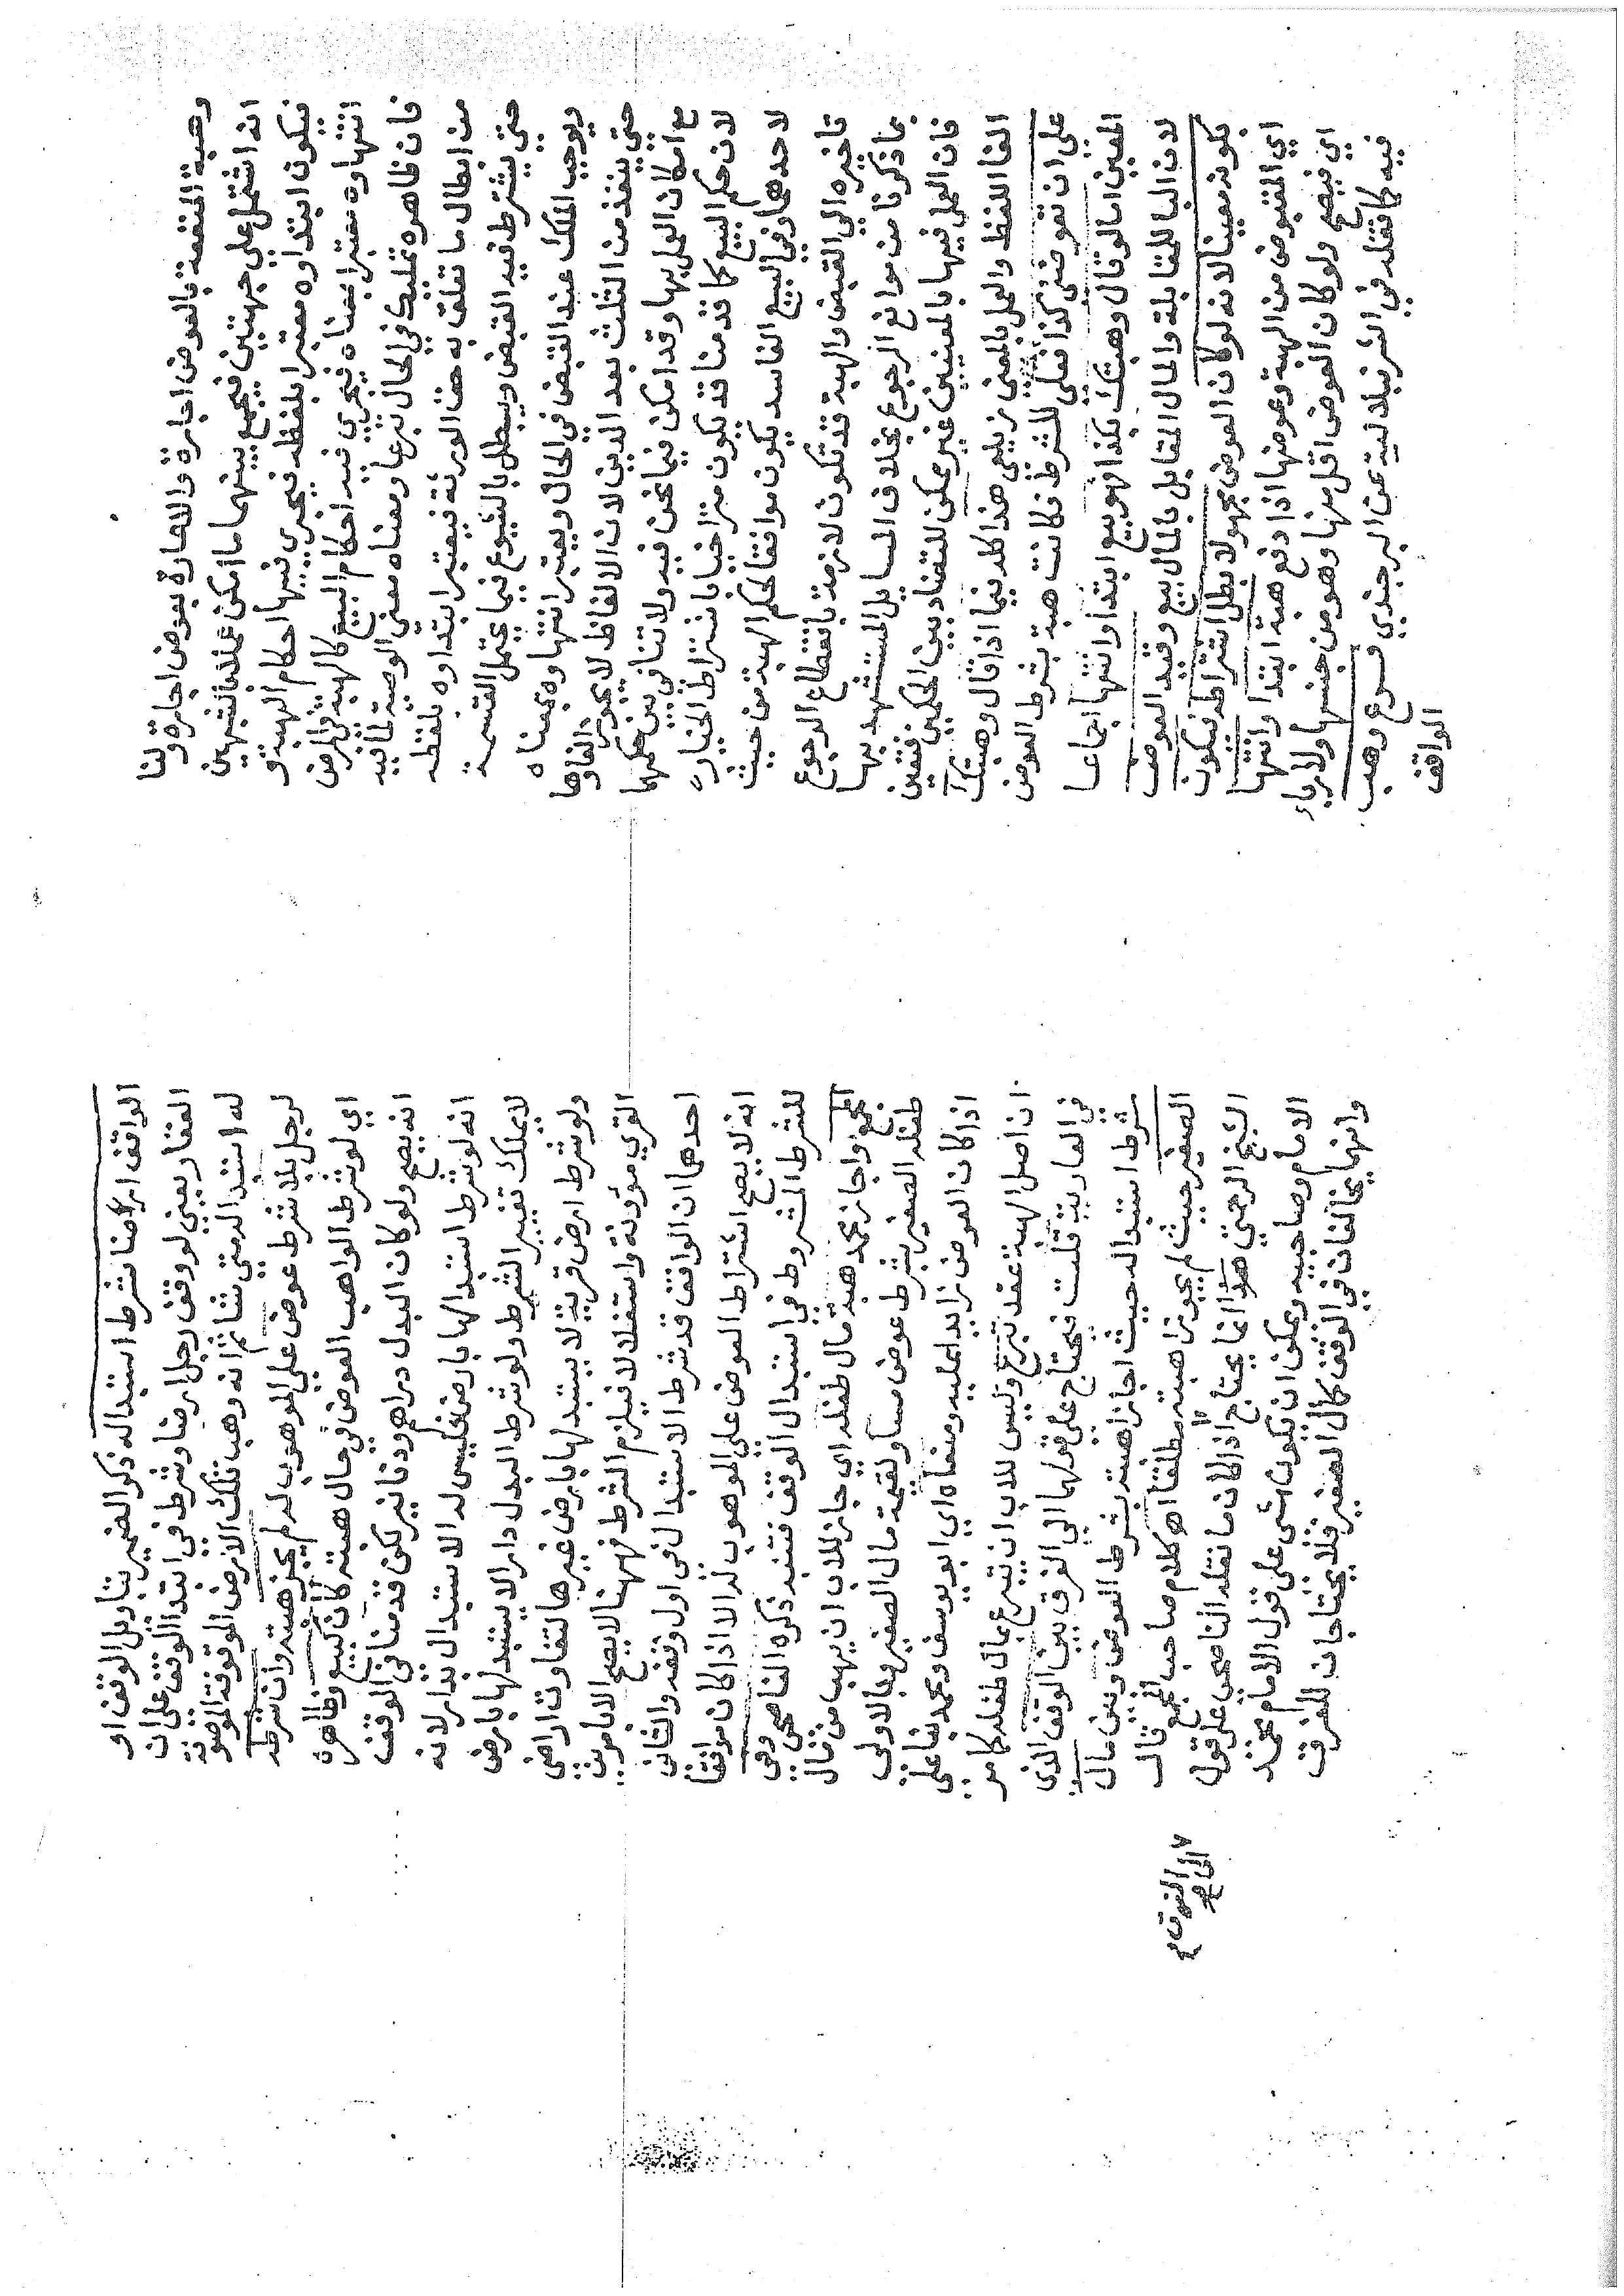 وهبة المنفعة بالعوض اجارة والاعارة بعوض اجارة ولنا
انه اشتمل علي جهتين فيجمع بينهما ما امكن عملا بالشبهين
فيكون ابتداوه معتبرا بلفظه فيجري فيها احكام الهبة و
انتهاوه معتبرا بمعناه فيجري فيه احكام البيع كالهبة في المرض
فان ظاهره تمليك في الحال تبرعا ومعناه معني الوصية لما فيه
من ابطال ما تعلق به حق الورثة فيعتبر ابتداوه بلفظه
حتي يشترط فيه القبض ويبطل بالشيوع فيما يحتمل القسمة
ويوجب الملك عند القبض في الحال ويعتبر انتهاوه بمعناه
حتي ينفذ من الثلث بعد الدين لان الالفاظ لا يجوز الغاوها
مع امكان العمل بها وقد امكن فيما نحن فيه ولا تنافي بين حكمهما
لان حكم البيع كما قدمنا قد يكون متراخيا باشتراط الخيار
لاحدهما وفي البيع الفاسد يكون موافقا لحكم الهبة من حيث
تاخيره الي القبض والهبة قد تكون لازمة بانقطاع الرجوع
بما ذكرنا من موانع الرجوع بخلاف المسايل المستشهد بها
فان العمل فيها بالمعنيين غير ممكن للتضاد بين الحكمين فتعين
الغا اللفظ والعمل بالمعني زيلعي هذا كله فيما اذا قال وهبتك
علي ان تعوضني كذا فعلي للشرط فكانت هبة بشرط العوض
المعين اما لو قال وهبتك بكذا فهو بيع ابتدا وانتها اجماعا
لان البا للمقابلة والمال المقابل بالمال بيع وقيد العوض
بكونه معينا لانه لو كان العوض مجهولا بطل اشتراطه فيكون
اي المقبوض من الهبة وعوضها اذا دفع هبة ابتدا وانتها
اي فيصح ولو كان العوض اقل منها وهو من جنسها ولا ربا
فيه كما نقله في الشرنبلالية عن البرجندي فروع وهب
الواقف
الواقف ارضا بشرط استبداله ذكر الضمير بتاويل الوقف او
العقار يعني لو وقف رجل ارضا وشرط في ابتدا الوقف علي ان
له استبداله متي شا ثم انه وهب تلك الارض الموقوفة الموصوفة
لرجل بلا شرط عوض علي الموهوب له لم يجز هبته وان شرط
اي لو شرط الواهب العوض في حال هبته كان كبيع وظاهره
انه يصح ولو كان البدل دراهم ودنانير لكن قدمنا في الوقف
انه لو شرط استبدالها بارض فليس له الاستبدال بدار لانه
لا يملك تغيير الشرط ولو شرط البدل دارا لا يستبدلها بارض
ولو شرط ارض قرية لا يستبدلها بارض غيرها لتفاوت اراضي
القري مؤونة واستغلالا فيلزم الشرط فههنا لا يصح الا بامرين
احدهما ان الواقف قد شرط الاستبدال في اول وقفه والثاني
انه لا يصح اشتراط العوض علي الموهوب له الا اذا كان موافقا
للشرط المشروط في استبدال الوقف فتنبه ذكره الناصحي وفي
المجمع واجاز محمد هبة مال طفله اي جاز للاب ان يهب من مال
طفله الصغير بشرط عوض مساو لقيمة مال الصغير وبالاولي
اذا كان العوض زايدا عليه ومنعاه اي ابو يوسف ومحمد بنا علي
ان اصل الهبة عقد تبرع وليس للاب ان يتبرع بمال طفله كما مر
في العارية قلت فيحتاج علي قولهما الي الفرق بين الوقف الذي
شرط استبداله حيث اجازا هبته بشرط العوض وبين مال
الصغير حيث لم يجوزا هبته مطلقا اه كلام صاحب المجمع قال
الشيخ الرحمتي هذا انما يحتاج اذا كان ما نقله الناصحي علي قول
الامام وصاحبيه ويمكن ان يكون مشي علي قول الامام محمد
وانهما يخالفان في الوقف كمال الصغير فلا يحتاجان للفرق